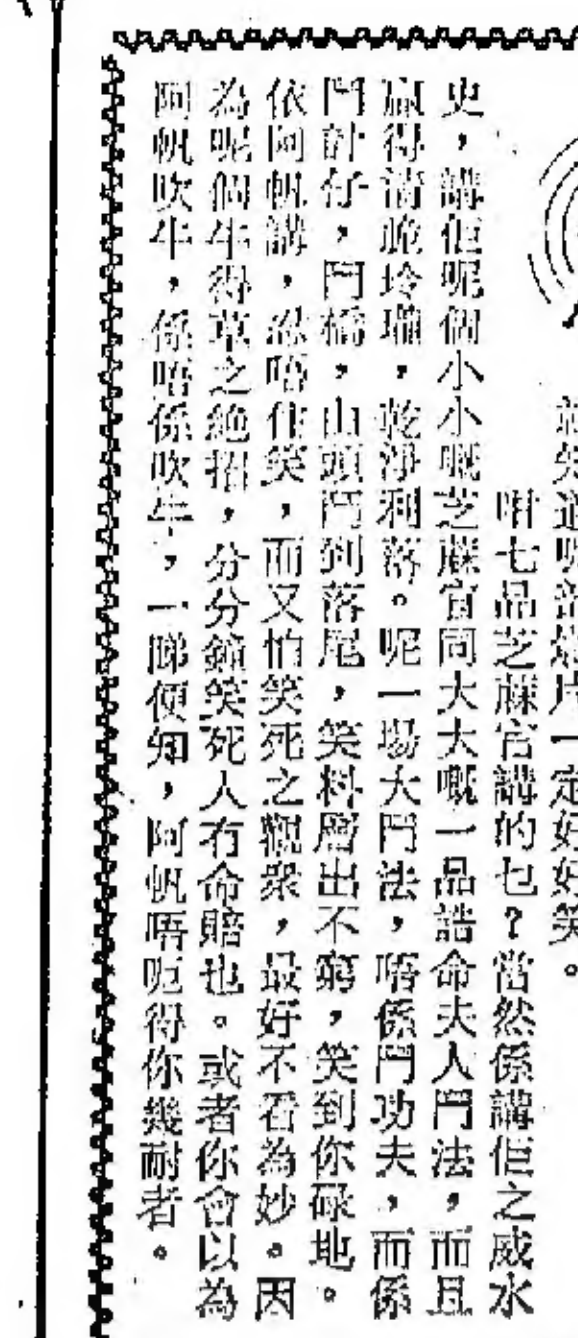 就知道呢部爛片一定好好笑。
咁七品芝蔴官講的乜？當然係講佢之威水
史，講佢呢個小小嘅芝蔴官同大大嘅一品誥命夫人鬥法，而且
贏得清脆玲瓏，乾淨利落。呢一場大鬥法，唔係鬥功夫，而係
鬥計仔，鬥橋，由頭鬥到落尾，笑料層出不窮，笑到你碌地。
依阿帆講，忍唔住笑，而又怕笑死之觀衆，最好不看為妙。因
為呢個牛得草之絶招，分分鐘笑死人有命賠也。或者你會以為
阿帆吹牛，係唔係吹牛，一睇便知，阿帆唔呃得你幾耐者。